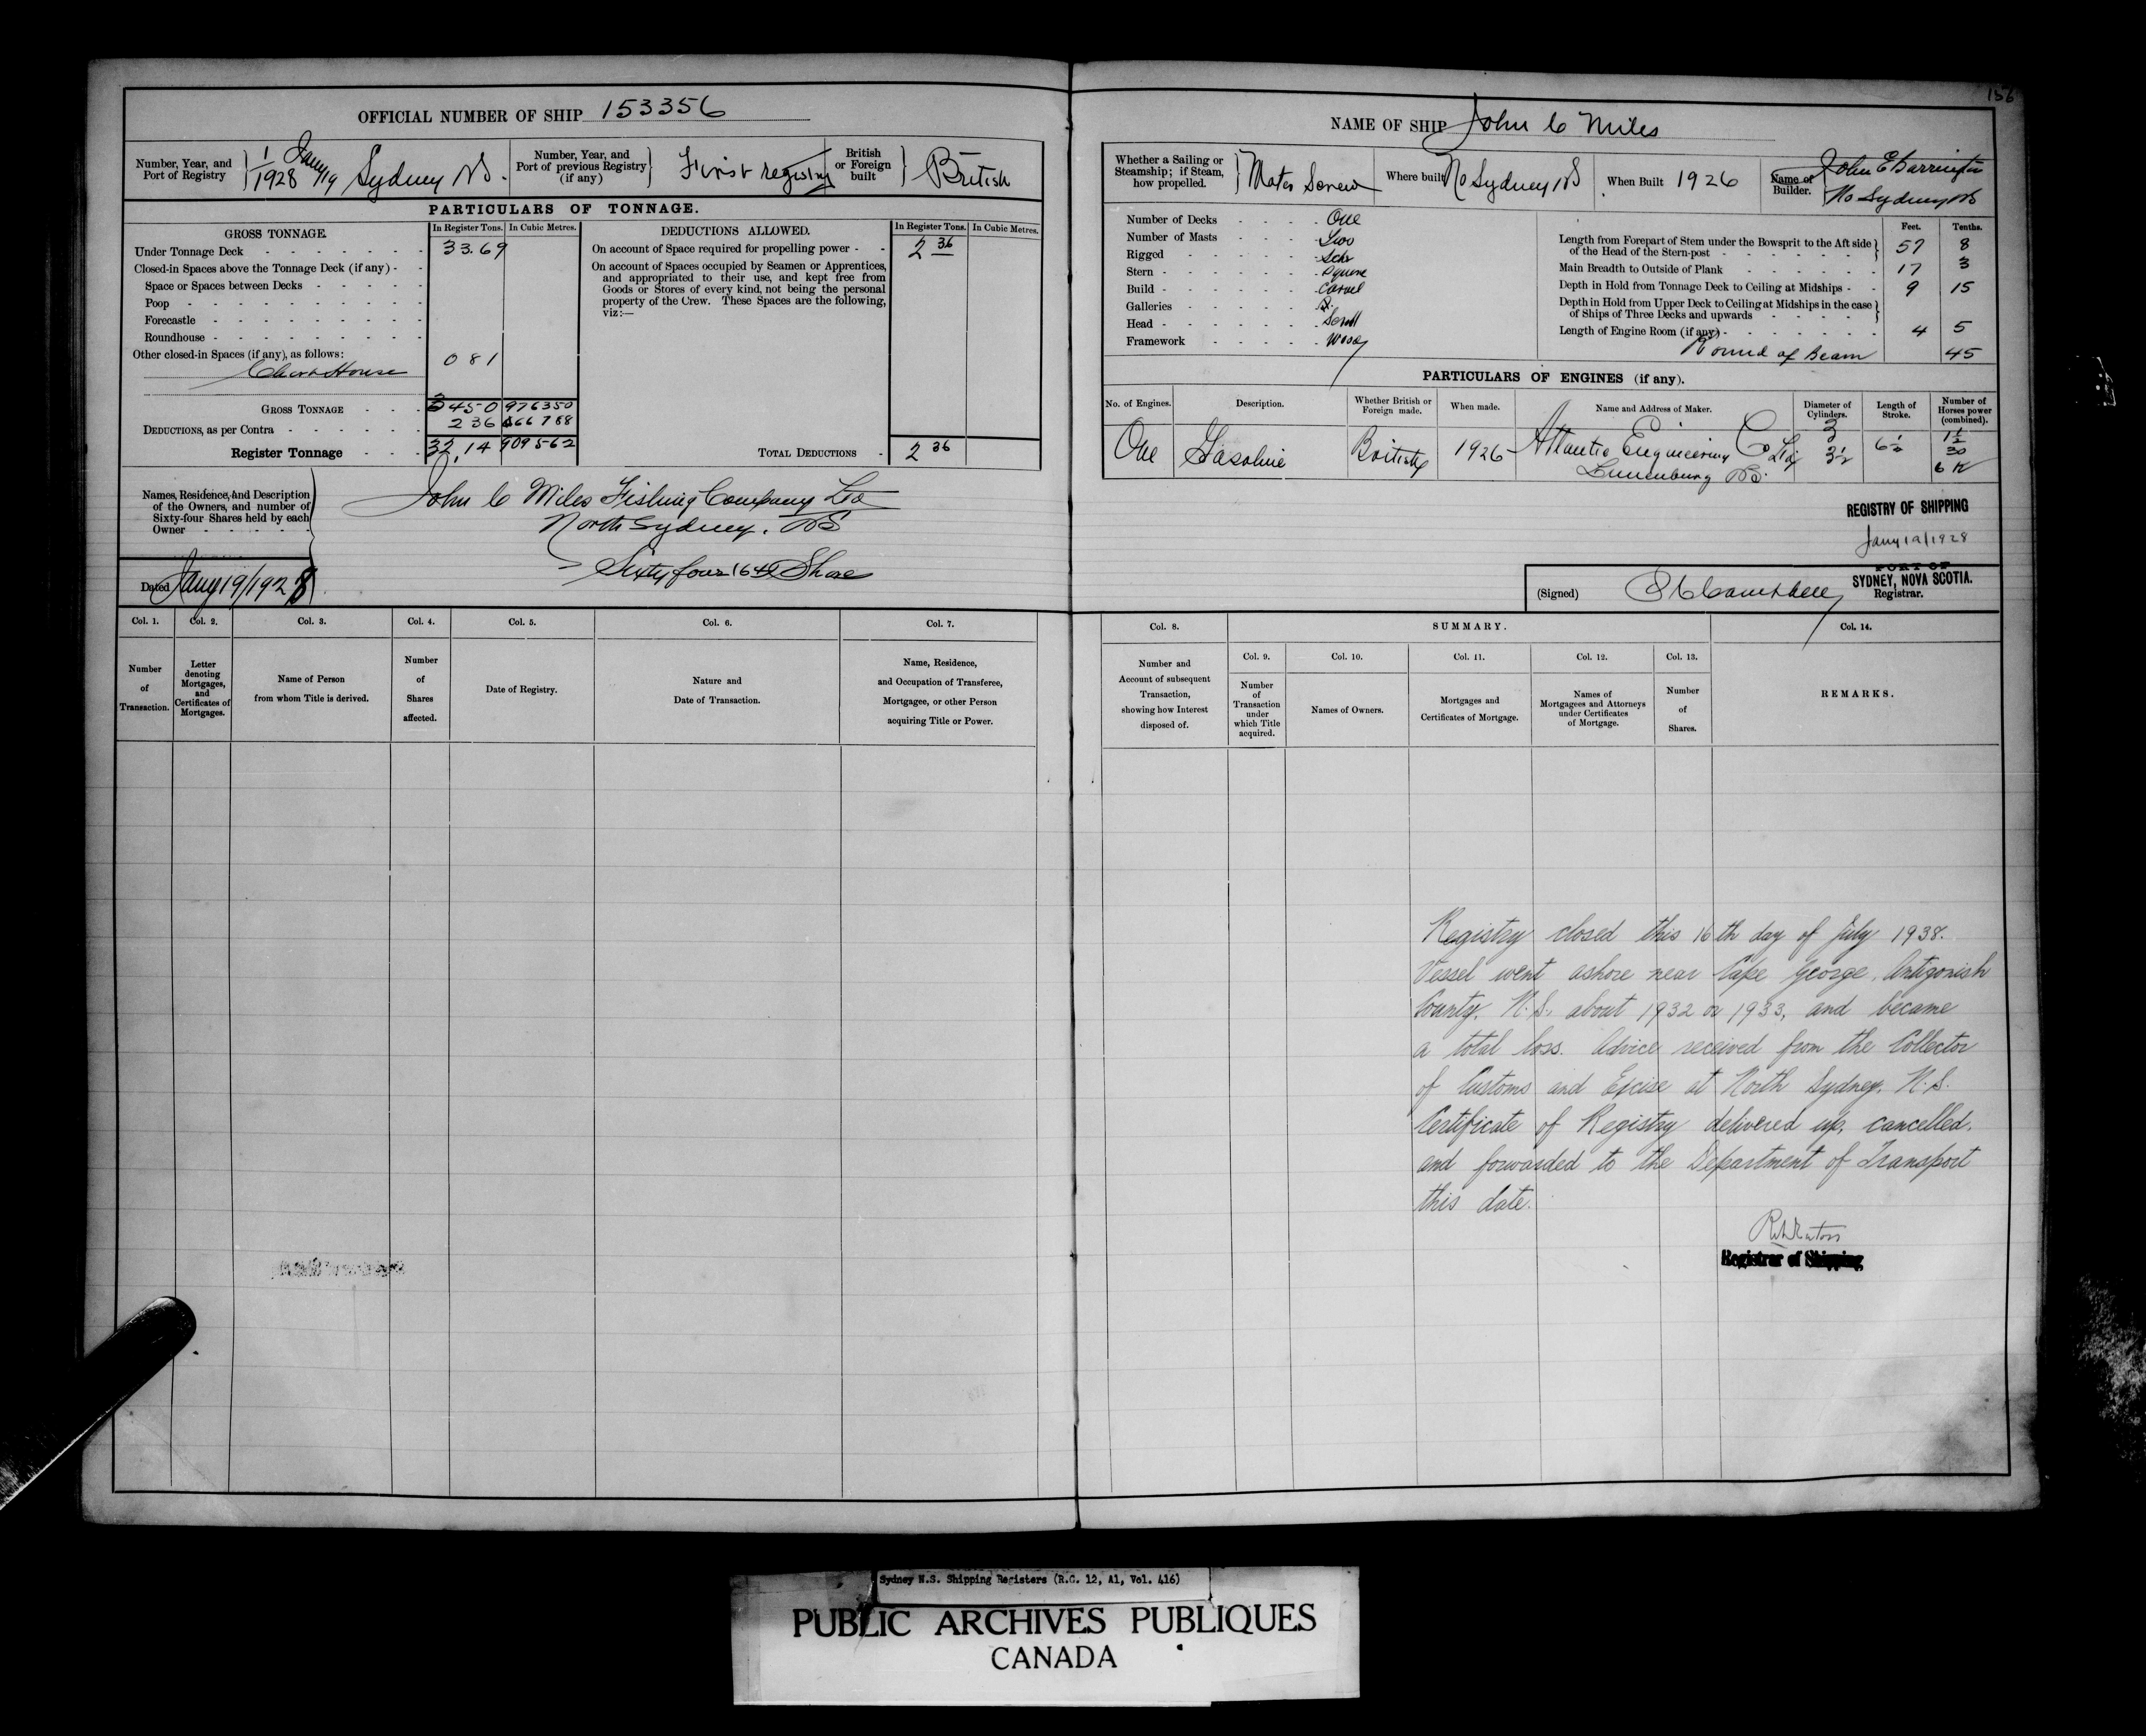 156
OFFICIAL NUMBER OF SHIP 153356
Number, Year, and Port of Registry
1/1928 Jany 19 Sydney NS.
Number, Year, and Port of previous Registry (if any)
First registry
British or Foreign built
British
PARTICULARS OF TONNAGE.
GROSS TONNAGE.
In Register Tons.
In Cubic Metres.
Under Tonnage Deck 33.69
Closed-in Spaces above the Tonnage Deck (if any)
Space or Spaces between Decks
Poop
Forecastle
Roundhouse
Other closed-in Spaces (if any), as follows:
Chart House 0 81
GROSS TONNAGE 34 50 97 6350
DEDUCTIONS, as per Contra 2 36 6 6788
Register Tonnage 32.14 909562
DEDUCTIONS ALLOWED.
In Register Tons.
In Cubic Metres.
On account of Space required for propelling power 2 36
On account of Spaces occupied by Seamen or Apprentices,
and appropriated to their use, and kept free from
Goods or Stores of every kind, not being the personal
property of the Crew. These Spaces are the following,
viz:—
TOTAL DEDUCTIONS 2 36
Names, Residence, and Description
of the Owners, and number of
Sixty-four Shares held by each
Owner
John C Miles Fishing Company Ltd
North Sydney. NS
Sixty four 64 Share
Dated Jany 19/1928
Col. 1.
Number of Transaction.
Col. 2.
Letter denoting Mortgages, and Certificates of Mortgages.
Col. 3.
Name of Person from whom Title is derived.
Col. 4.
Number of Shares affected.
Col. 5.
Date of Registry.
Col. 6.
Nature and Date of Transaction.
Col. 7.
Name, Residence, and Occupation of Transferee, Mortgagee, or other Person acquiring Title or Power.
NAME OF SHIP John C Miles
Whether a Sailing or Steamship; if Steam, how propelled.
Motor Screw
Where built No Sydney NS
When Built 1926
Name of Builder.
John E Barrington
No Sydney NS
Number of Decks One
Number of Masts Two
Rigged Schr
Stern Square
Build Carvel
Galleries
Head Scroll
Framework Wood
Feet. Tenths.
Length from Forepart of Stem under the Bowsprit to the Aft side of the Head of the Stern-post 57 8
Main Breadth to Outside of Plank 17 3
Depth in Hold from Tonnage Deck to Ceiling at Midships 9 15
Depth in Hold from Upper Deck to Ceiling at Midships in the case of Ships of Three Decks and upwards
Length of Engine Room (if any) 4 5
Round of Beam 45
PARTICULARS OF ENGINES (if any).
No. of Engines.
Description.
Whether British or Foreign made.
When made.
Name and Address of Maker.
Diameter of Cylinders.
Length of Stroke.
Number of Horses power (combined).
One
Gasoline
British
1926
Atlantic Engineering Co Ltd
Lunenburg NS.
3
3½
6½
1½
30
REGISTRY OF SHIPPING
Jany 19/1928
PORT OF
SYDNEY, NOVA SCOTIA.
(Signed)
Registrar.
Col. 8.
Number and Account of subsequent Transaction, showing how Interest disposed of.
SUMMARY.
Col. 9.
Number of Transaction under which Title acquired.
Col. 10.
Names of Owners.
Col. 11.
Mortgages and Certificates of Mortgage.
Col. 12.
Names of Mortgagees and Attorneys under Certificates of Mortgage.
Col. 13.
Number of Shares.
Col. 14.
REMARKS.
Registry closed this 16th day of July 1938.
Vessel went ashore near Cape George, Antigonish
County, N.S. about 1932 or 1933, and became
a total loss. Advice received from the Collector
of Customs and Excise at North Sydney, N.S.
Certificate of Registry delivered up, cancelled,
and forwarded to the Department of Transport
this date.
Registrar of Shipping
Sydney N.S. Shipping Registers (R.G. 12, A1, Vol. 416)
PUBLIC ARCHIVES PUBLIQUES
CANADA